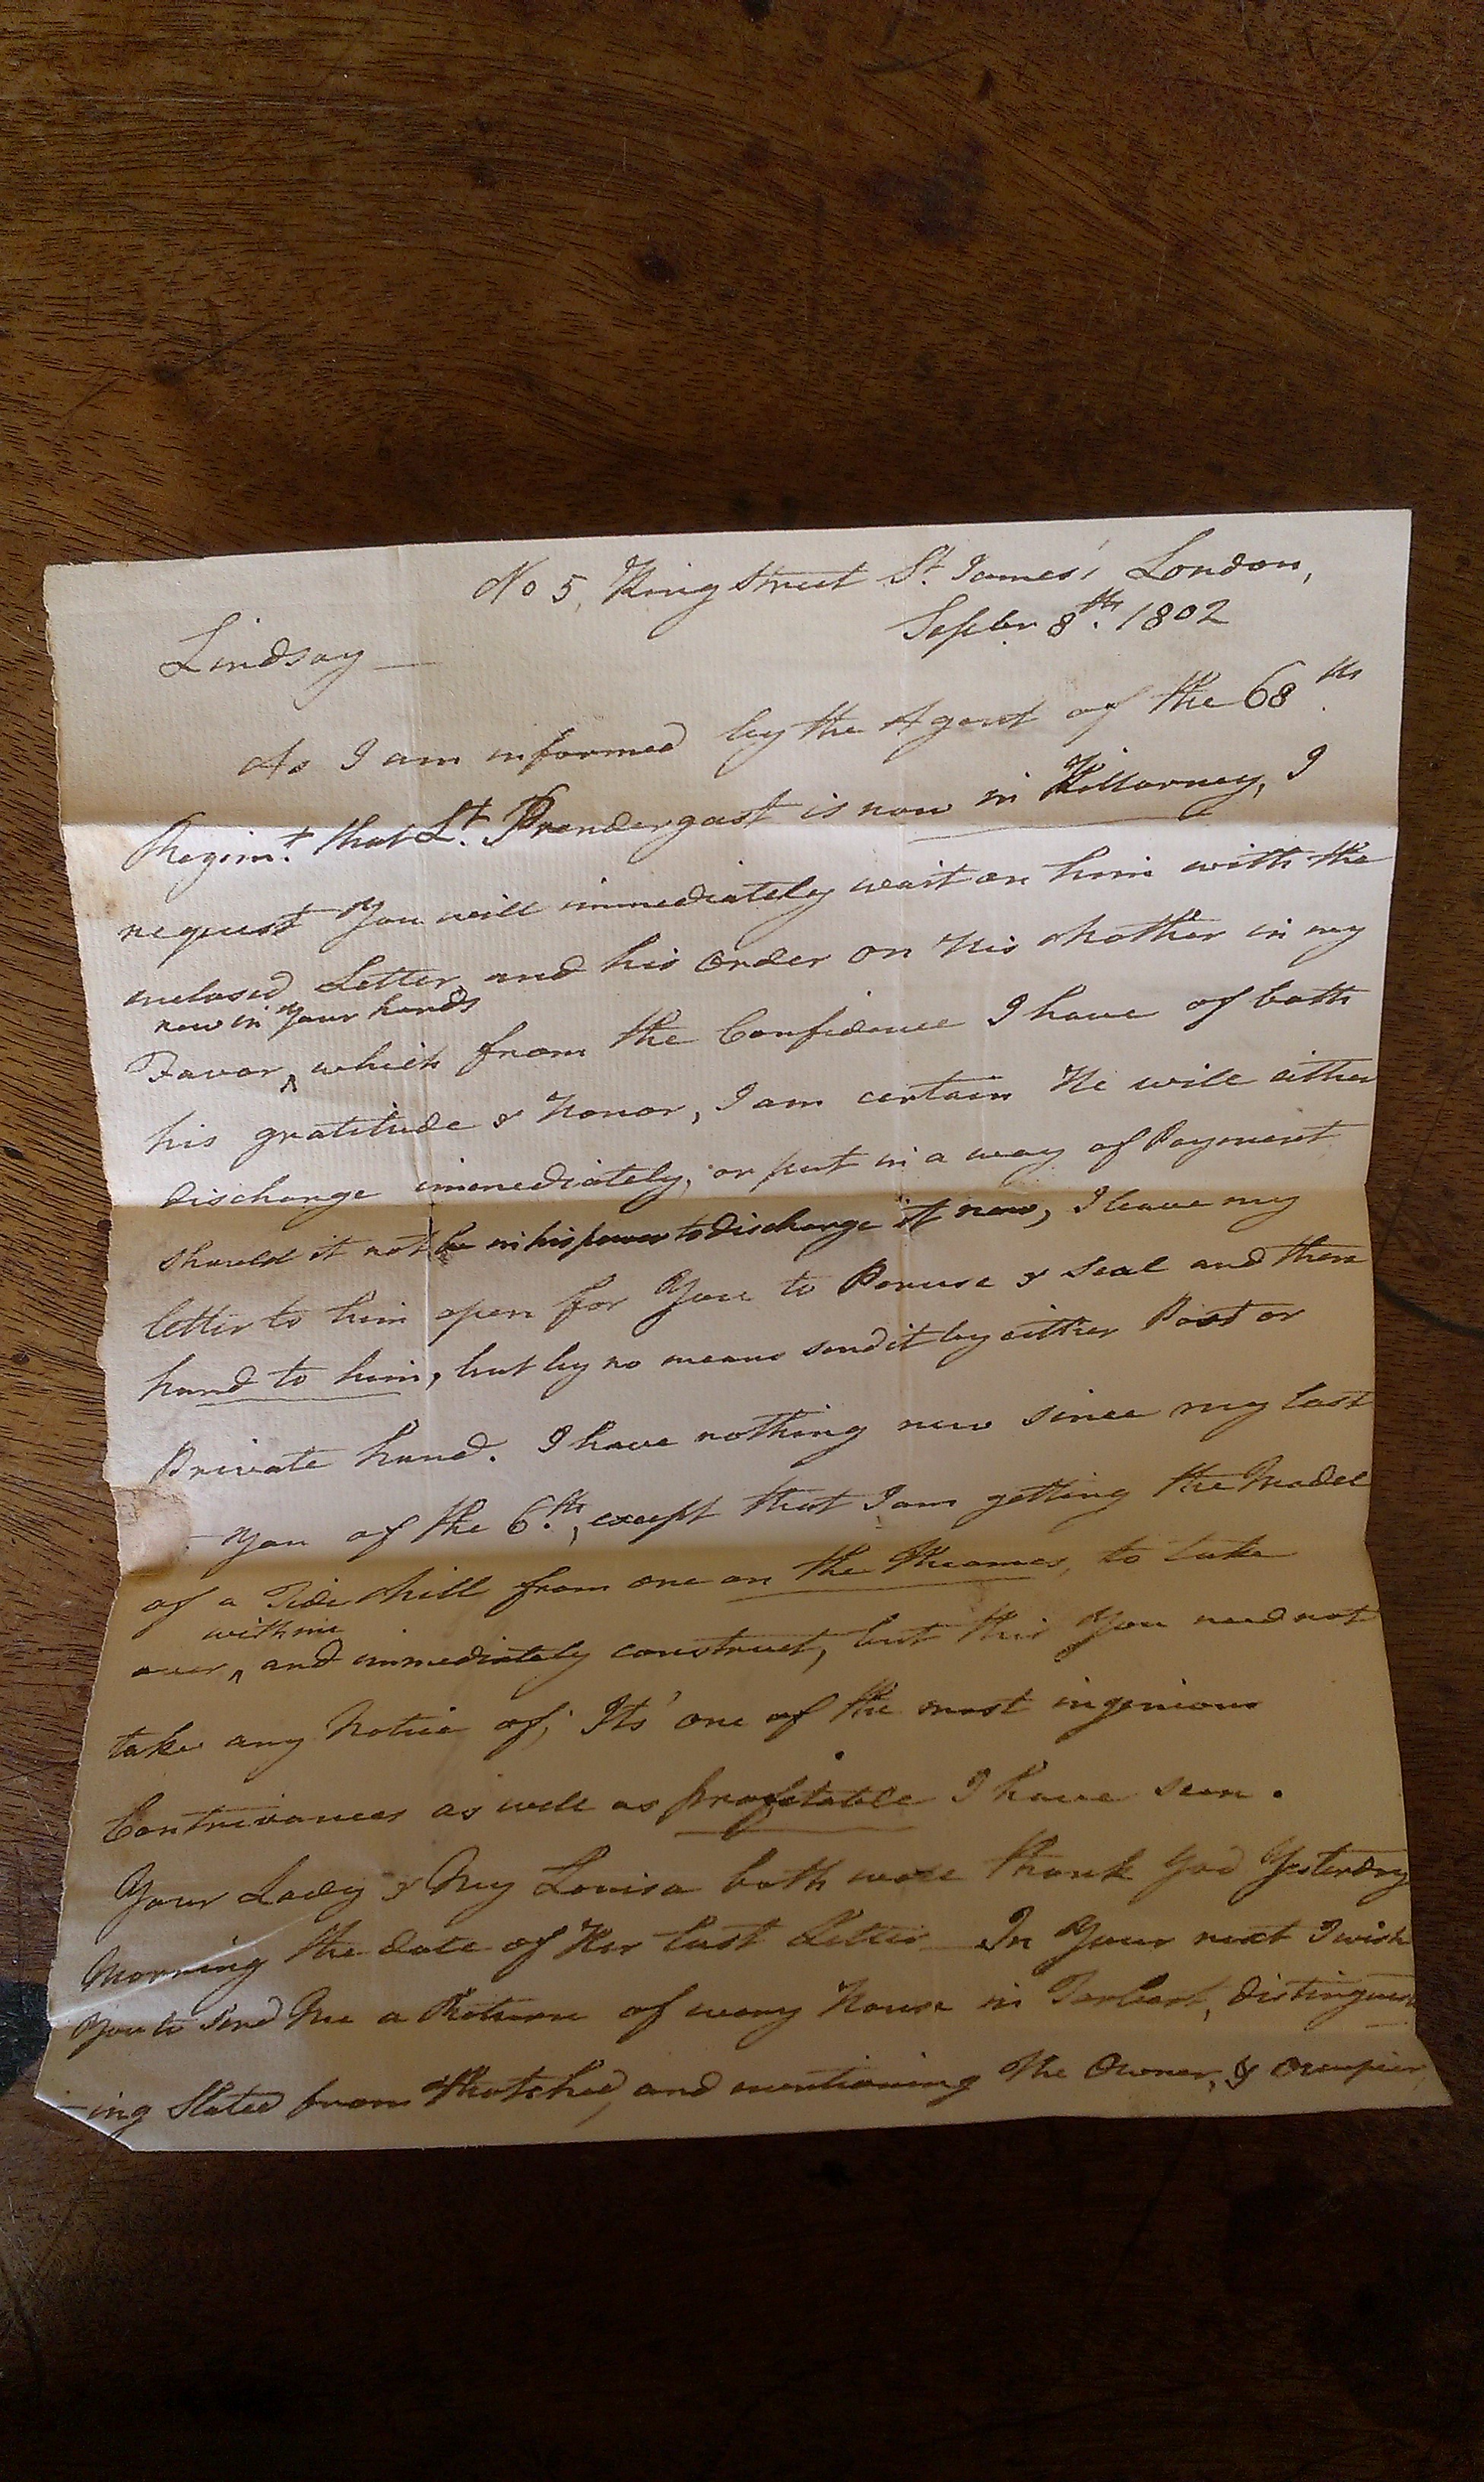 No 5, King Street St. James' London,
Septbr 8th. 1802
Lindsay —
As I am informed by the Agent of the 68th.
Regimt. that Lt. Prendergast is now in Killarney, I
request You will immediately wait on him with the
enclosed Letter, and his Order on His Mother in my
now in Your hands
Favor, ^ which from the Confidence I have of both
his gratitude & Honor, I am certain He will either
discharge immediately, or put in a way of Payment
should it not be in his power to discharge it now, I leave my
letter to him open for You to Peruse & Seal and then
hand to him, but by no means send it by either Post or
Private hand. I have nothing new since my last
You of the 6th., except that I am getting the Model
of a Tide Mill from one on the Theames, to take
with me
over ^, and immediately construct, but this You need not
take any Notice of, Its' one of the most ingenious
Contrivances as well as profitable I have seen.
Your Lady & My Louisa both were thank God Yesterday
Morning the date of Her last Letter — In Your next I wish
You to send Me a Return of every House in Tarbert, distinguish
-ing Slated from Thatched, and mentioning the Owner, & Occupier,